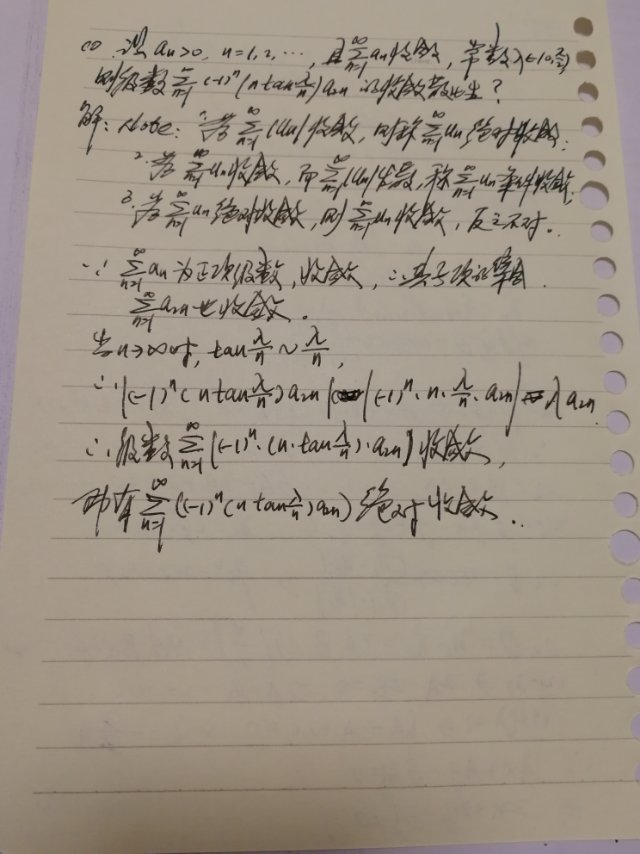 (1) 设 aₙ>0, n=1,2,…, 且∑_{n=1}^{∞} aₙ收敛, 常数λ∈(0,π/2)
则级数∑_{n=1}^{∞} (-1)ⁿ(n tan λ/n) a₂ₙ 的收敛散性?
解: Note: 1. 若∑_{n=1}^{∞}|uₙ|收敛, 则称∑_{n=1}^{∞}uₙ绝对收敛.
2. 若∑_{n=1}^{∞}uₙ收敛, 而∑_{n=1}^{∞}|uₙ|发散, 称∑_{n=1}^{∞}uₙ条件收敛.
3. 若∑_{n=1}^{∞}uₙ绝对收敛, 则∑_{n=1}^{∞}uₙ收敛, 反之不对。
∵ ∑_{n=1}^{∞}aₙ为正项级数, 收敛, ∴其子项的
∑_{n=1}^{∞}a₂ₙ也收敛.
当n→∞时, tan λ/n ~ λ/n,
∴ |(-1)ⁿ(n tan λ/n) a₂ₙ| |(-1)ⁿ·n·λ/n·a₂ₙ| λa₂ₙ
∴ 级数∑_{n=1}^{∞}|(-1)ⁿ·(n·tan λ/n)·a₂ₙ|收敛,
即有∑_{n=1}^{∞}((-1)ⁿ(n tan λ/n)a₂ₙ)绝对收敛.